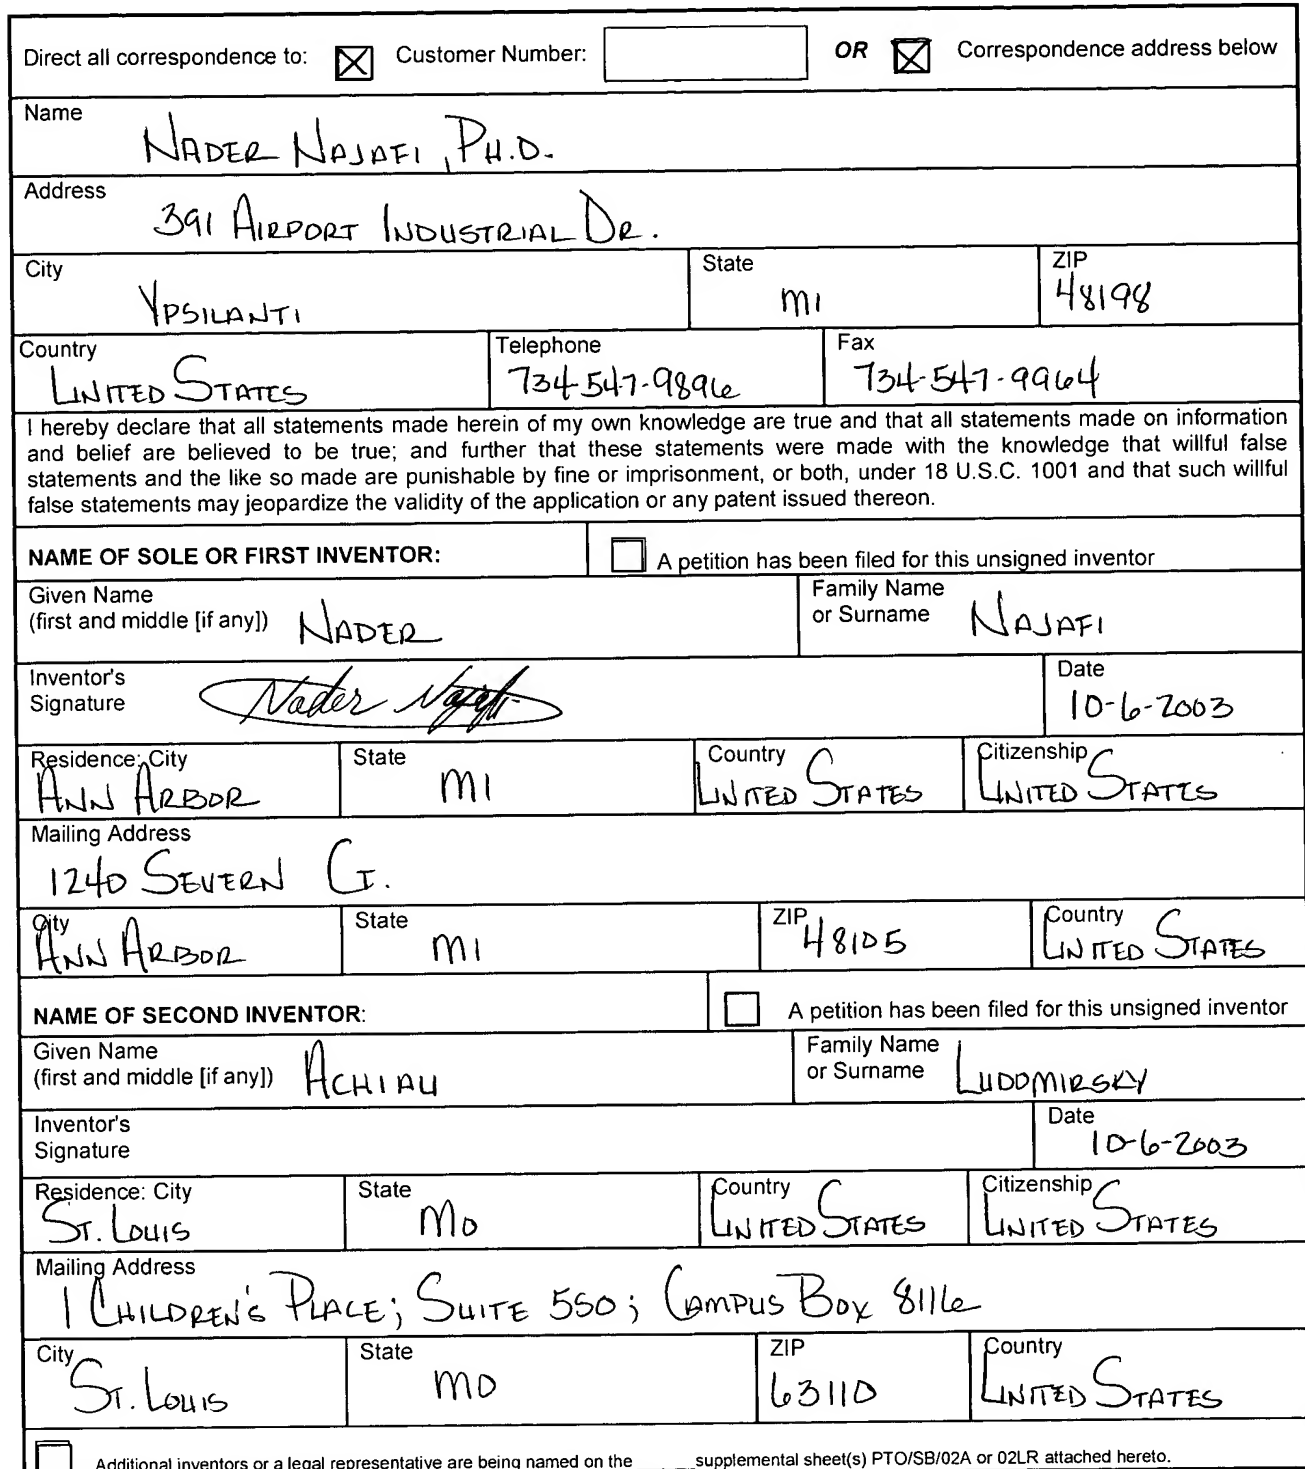 Direct all correspondence to: ☒ Customer Number: OR ☒ Correspondence address below
Name
NADER NAJAFI, PH.D.
Address
391 AIRPORT INDUSTRIAL DR.
City State ZIP
YPSILANTI MI 48198
Country Telephone Fax
UNITED STATES 734-547-9896 734-547-9964
I hereby declare that all statements made herein of my own knowledge are true and that all statements made on information
and belief are believed to be true; and further that these statements were made with the knowledge that willful false
statements and the like so made are punishable by fine or imprisonment, or both, under 18 U.S.C. 1001 and that such willful
false statements may jeopardize the validity of the application or any patent issued thereon.
NAME OF SOLE OR FIRST INVENTOR: ☐ A petition has been filed for this unsigned inventor
Given Name Family Name
(first and middle [if any]) NADER or Surname NAJAFI
Inventor's Date
Signature Nader Najafi 10-6-2003
Residence: City State Country Citizenship
ANN ARBOR MI UNITED STATES UNITED STATES
Mailing Address
1240 SEVERN CT.
City State ZIP Country
ANN ARBOR MI 48105 UNITED STATES
NAME OF SECOND INVENTOR: ☐ A petition has been filed for this unsigned inventor
Given Name Family Name
(first and middle [if any]) ACHIAU or Surname LUDOMIRSKY
Inventor's Date
Signature 10-6-2003
Residence: City State Country Citizenship
ST. LOUIS MO UNITED STATES UNITED STATES
Mailing Address
1 CHILDREN'S PLACE; SUITE 550; CAMPUS BOX 8116
City State ZIP Country
ST. LOUIS MO 63110 UNITED STATES
☐ Additional inventors or a legal representative are being named on the _____ supplemental sheet(s) PTO/SB/02A or 02LR attached hereto.